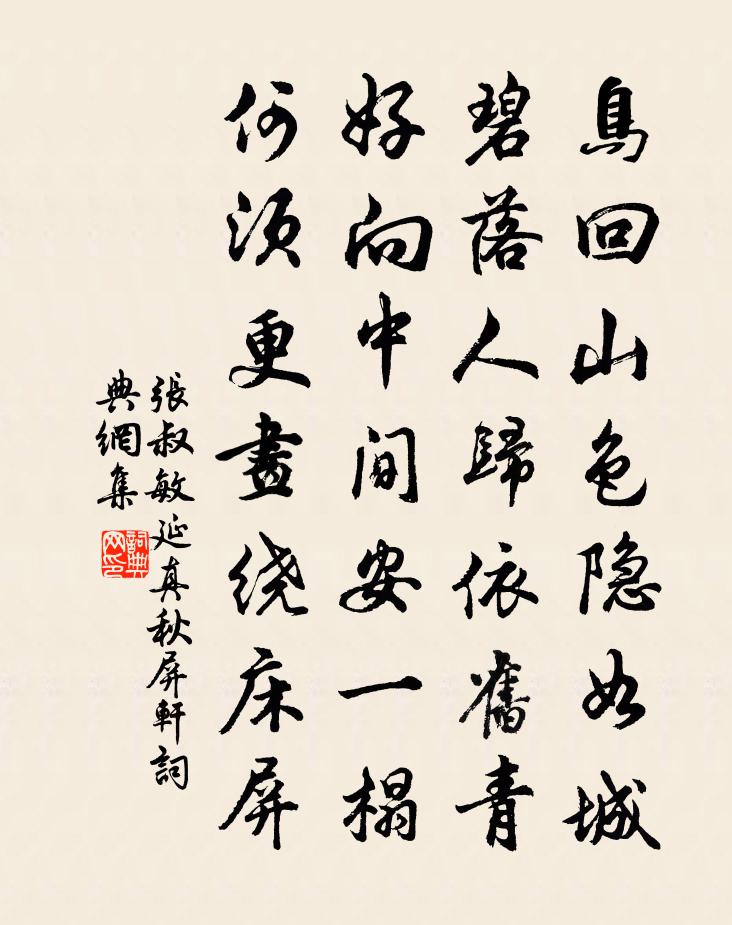 鳥回山色隐如城
碧落人歸依舊青
好向中间安一榻
何须更畫绕床屏
張叔敏延真秋屏軒詞
典網集
詞典
网印